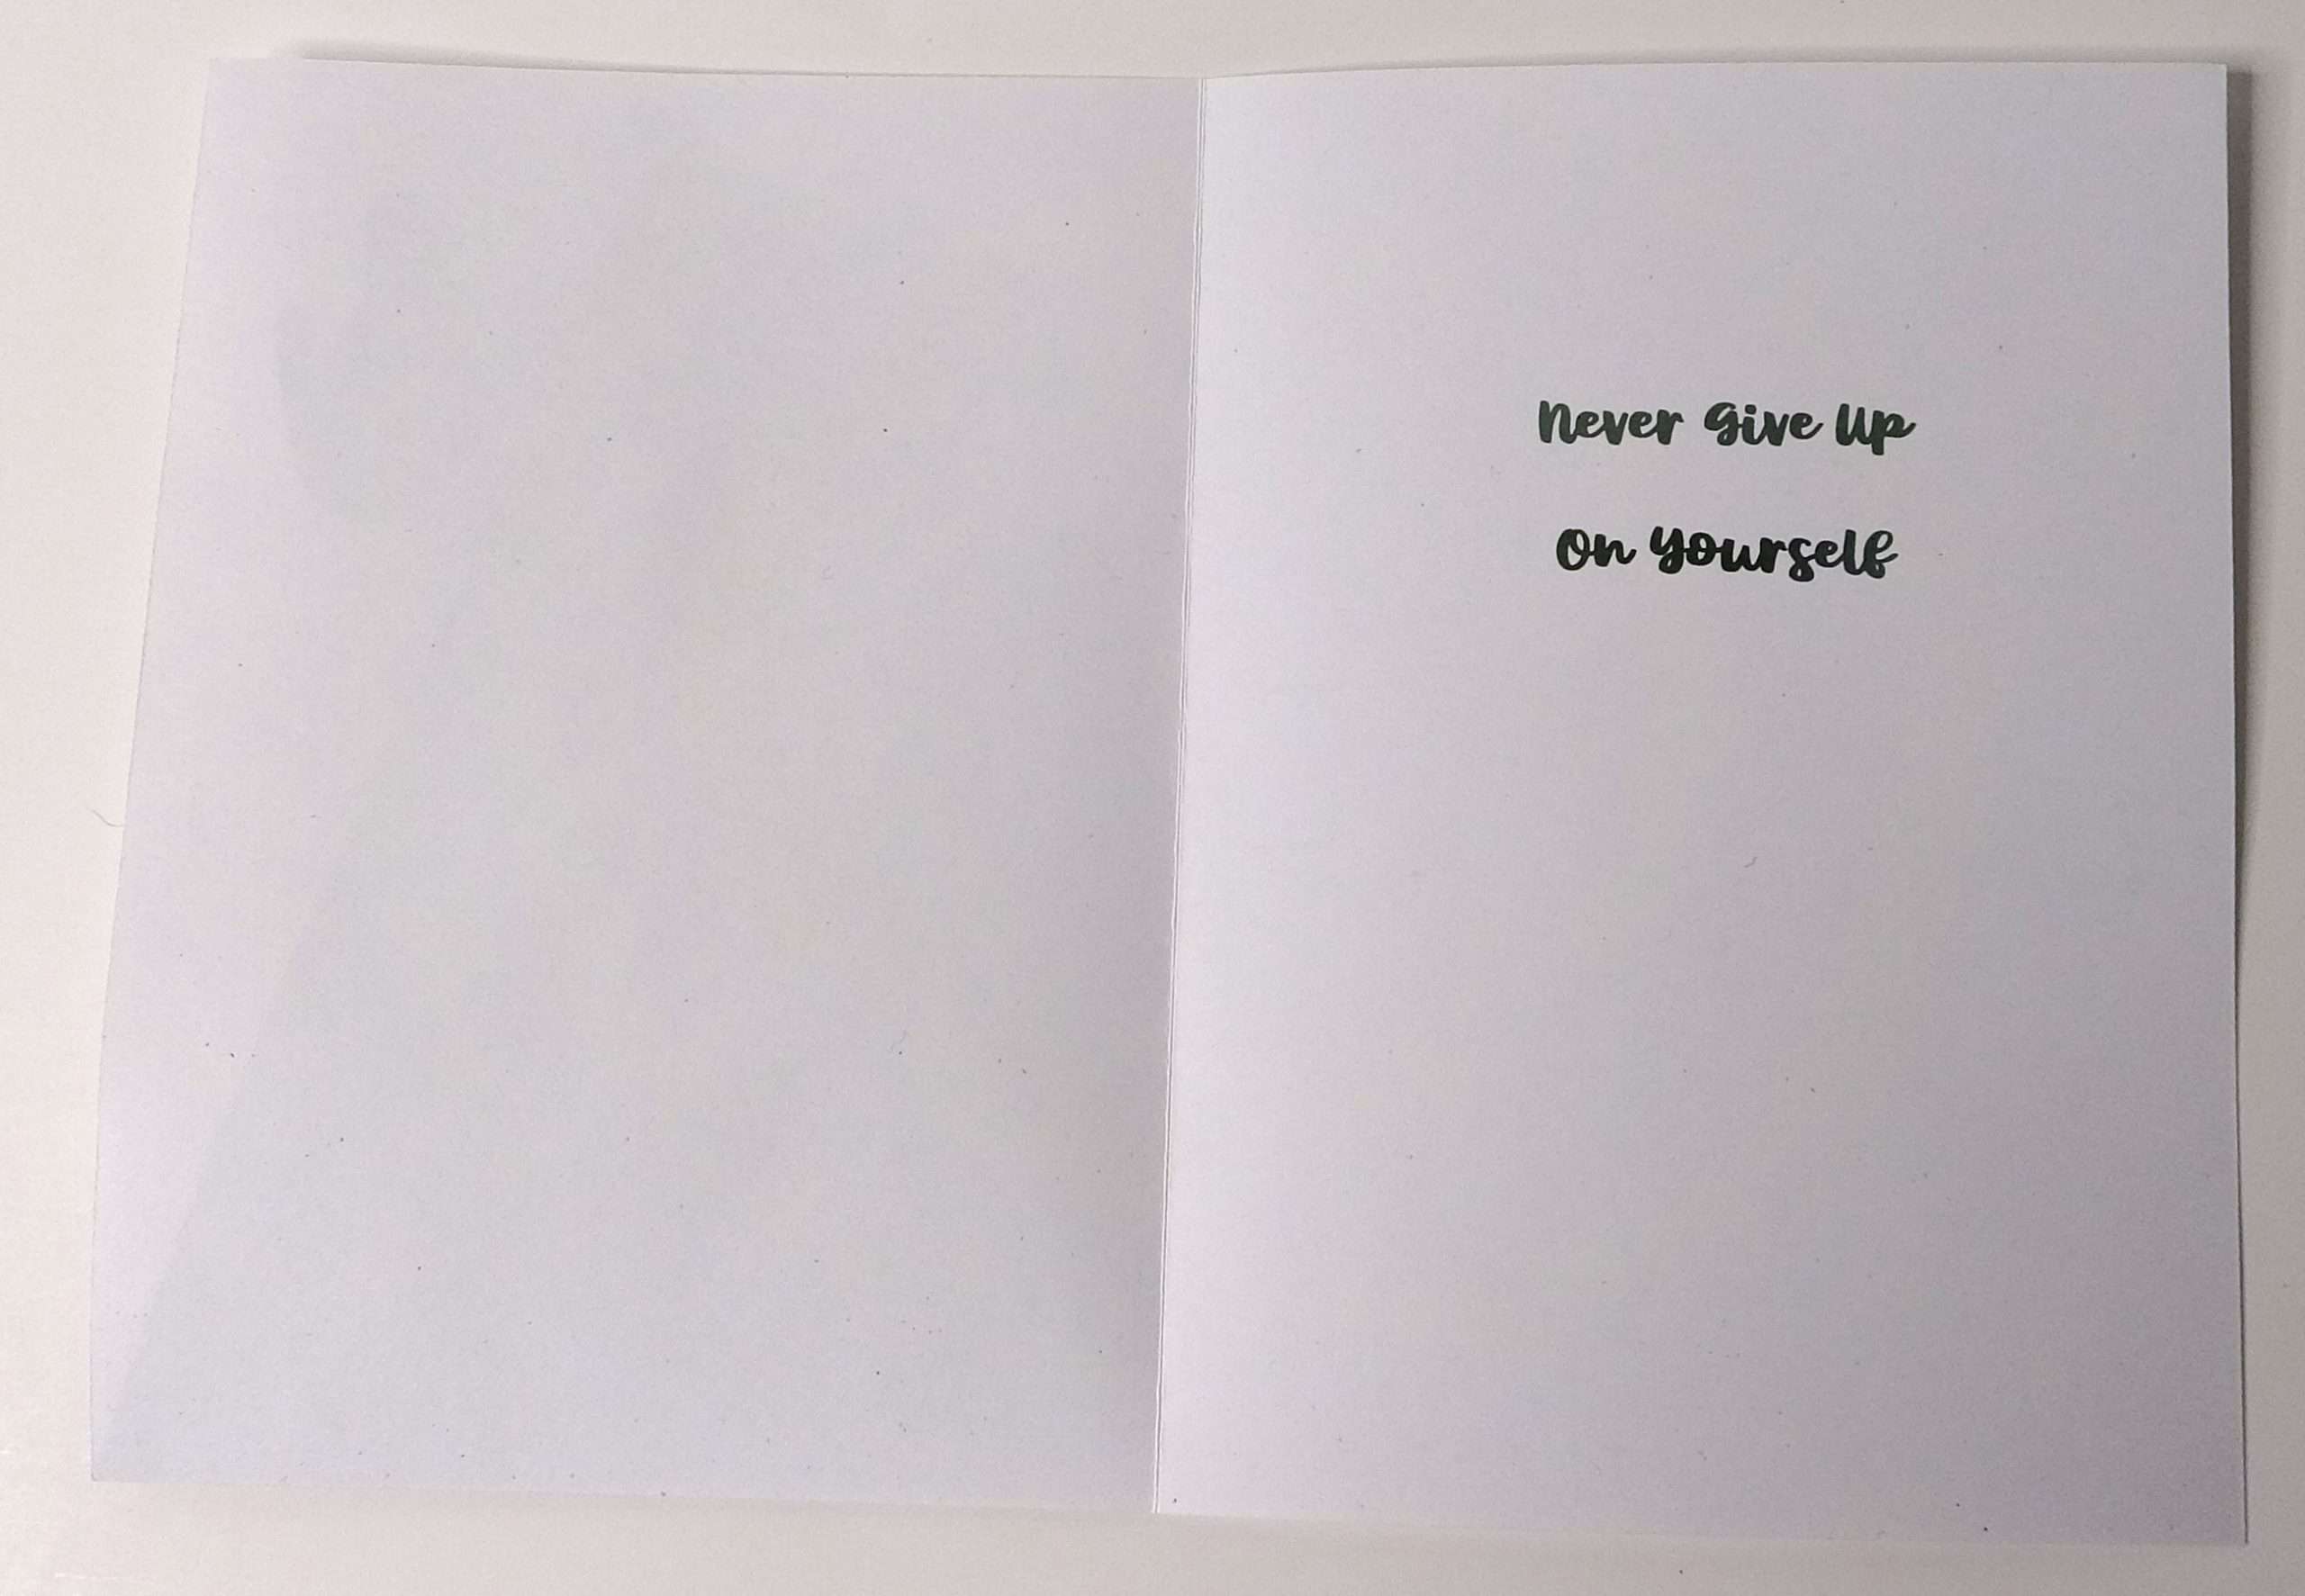 Never Give Up
On Yourself